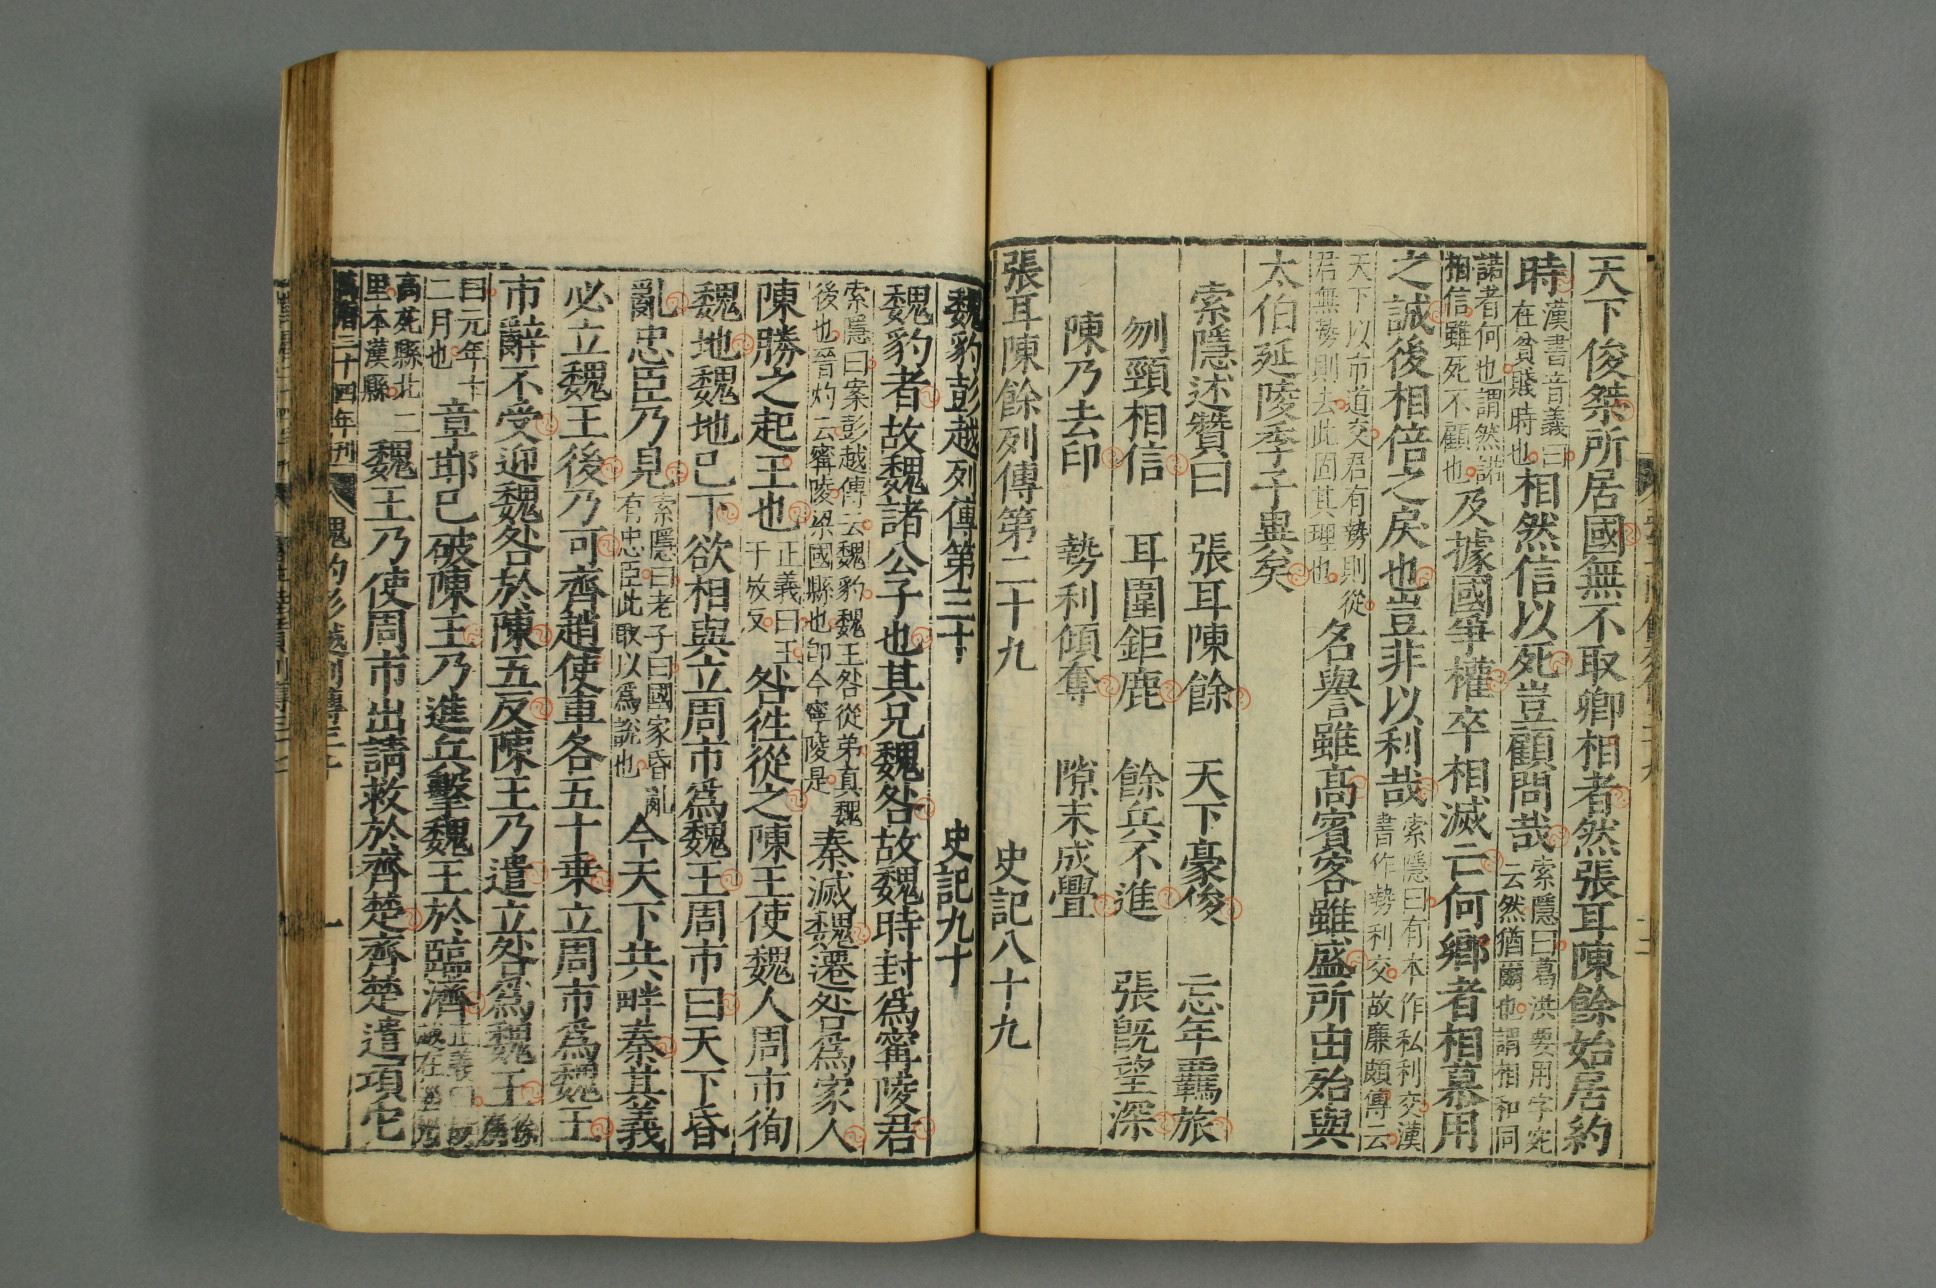 天下俊桀所居國無不取卿相者然張耳陳餘始居約
時漢書音義曰在貧賤時也相然信以死豈顧問哉索隱曰葛洪要用字苑云然猶爾也謂相和同
諾者何也謂然諾相信雖死不顧也及據國爭權卒相滅亡何鄉者相慕用
之誠後相倍之戾也豈非以利哉索隱曰有本作私利交漢書作勢利交故廉頗傳云
天下以市道交君有勢則從君無勢則去此固其理也名譽雖高賓客雖盛所由殆與
太伯延陵季子異矣
索隱述贊曰 張耳陳餘 天下豪俊 忘年羈旅
刎頸相信 耳圍鉅鹿 餘兵不進 張既望深
陳乃去印 勢利傾奪 隙末成釁
張耳陳餘列傳第二十九 史記八十九
魏豹彭越列傳第三十 史記九十
魏豹者故魏諸公子也其兄魏咎故魏時封爲寗陵君
索隱曰案彭越傳云魏豹魏王咎從弟真魏後也晉灼云寗陵梁國縣也即今寧陵是秦滅魏遷咎爲家人
陳勝之起王也正義曰王于放反咎徃從之陳王使魏人周市徇
魏地魏地已下欲相與立周市爲魏王周市曰天下昏
亂忠臣乃見索隱曰老子曰國家昏亂有忠臣此取以爲說也今天下共畔秦其義
必立魏王後乃可齊趙使車各五十乗立周市爲魏王
市辭不受迎魏咎於陳五反陳王乃遣立咎爲魏王徐廣
曰元年十二月也章邯已破陳王乃進兵擊魏王於臨濟正義曰故城在淄州
高苑縣北二里本漢縣魏王乃使周市出請救於齊楚齊楚遣項它
萬曆二十四年刊 魏豹彭越列傳三十 一